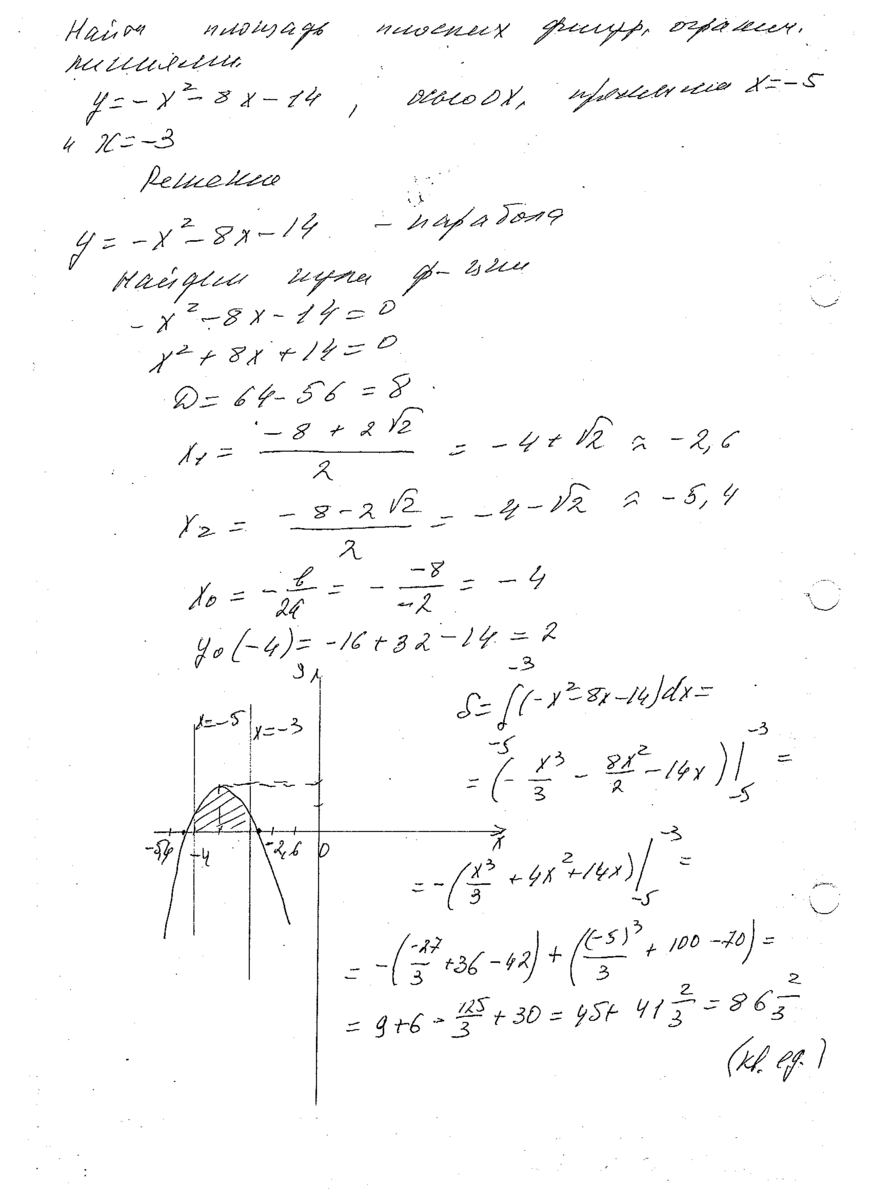 Найти площадь плоских фигур, огранич.
линиями.
y = -x² - 8x - 14, осью OX, прямыми x = -5
и x = -3
Решение
y = -x² - 8x - 14 - парабола
Найдем нули ф-ции
-x² - 8x - 14 = 0
x² + 8x + 14 = 0
D = 64 - 56 = 8
x₁ = (-8 + 2√2)/2 = -4 + √2 ≈ -2,6
x₂ = (-8 - 2√2)/2 = -4 - √2 ≈ -5,4
x₀ = -b/2a = - -8/-2 = -4
y₀(-4) = -16 + 32 - 14 = 2
y
x = -5 x = -3
-5,4 -4 -2,6 0 x
S = ∫₋₅⁻³ (-x² - 8x - 14)dx =
= (- x³/3 - 8x²/2 - 14x) |₋₅⁻³ =
= -(x³/3 + 4x² + 14x) |₋₅⁻³ =
= -(-27/3 + 36 - 42) + ((-5)³/3 + 100 - 70) =
= 9 + 6 - 125/3 + 30 = 45 + 41 2/3 = 86 2/3
(кв. ед.)